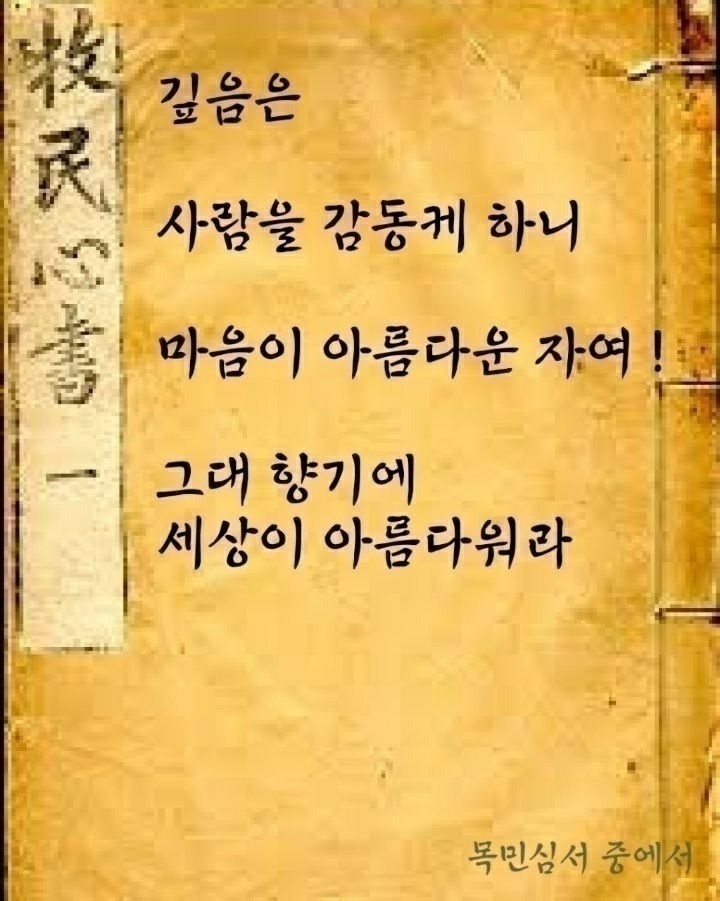 牧民心書 一
깊음은
사람을 감동케 하니
마음이 아름다운 자여 !
그대 향기에
세상이 아름다워라
목민심서 중에서